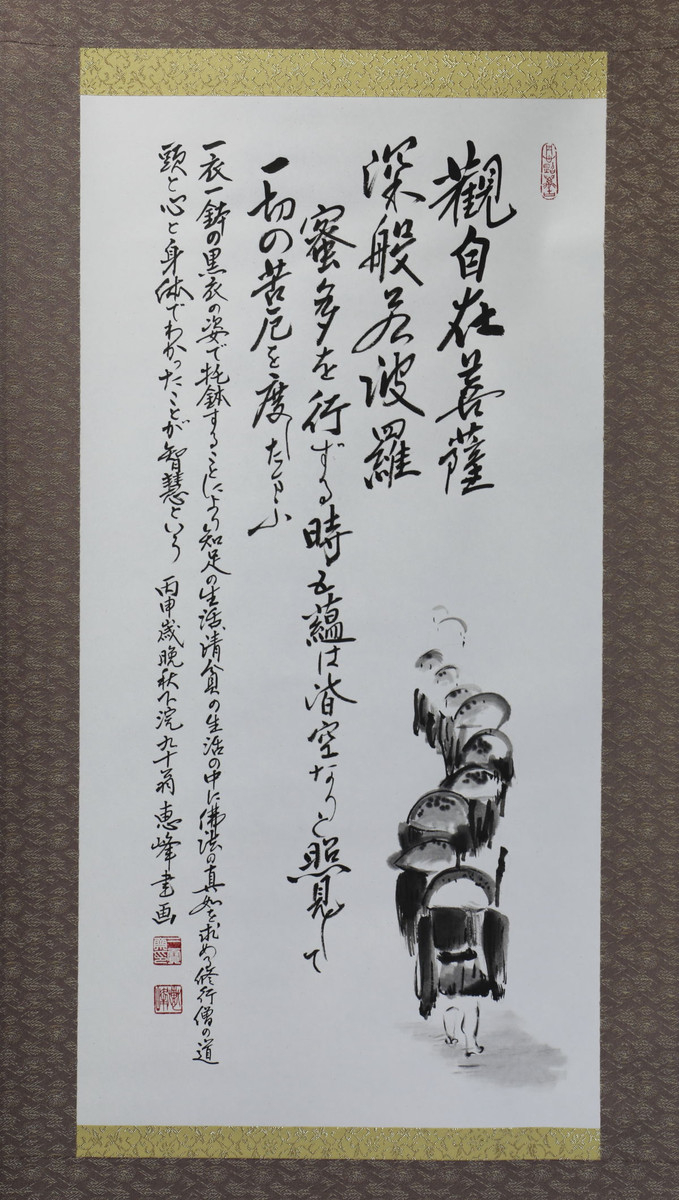 觀自在菩薩
深般若波羅
蜜多を行ずる時五蘊は皆空なりと照見して
一切の苦厄を度したまふ
一衣一鉢の黒衣の姿で托鉢することにより知足の生活清貧の生活の中に佛法の真如を求める修行僧の道
頭と心と身体でわかったことが智慧という 丙申歳晩秋下浣九十翁 恵峰書画